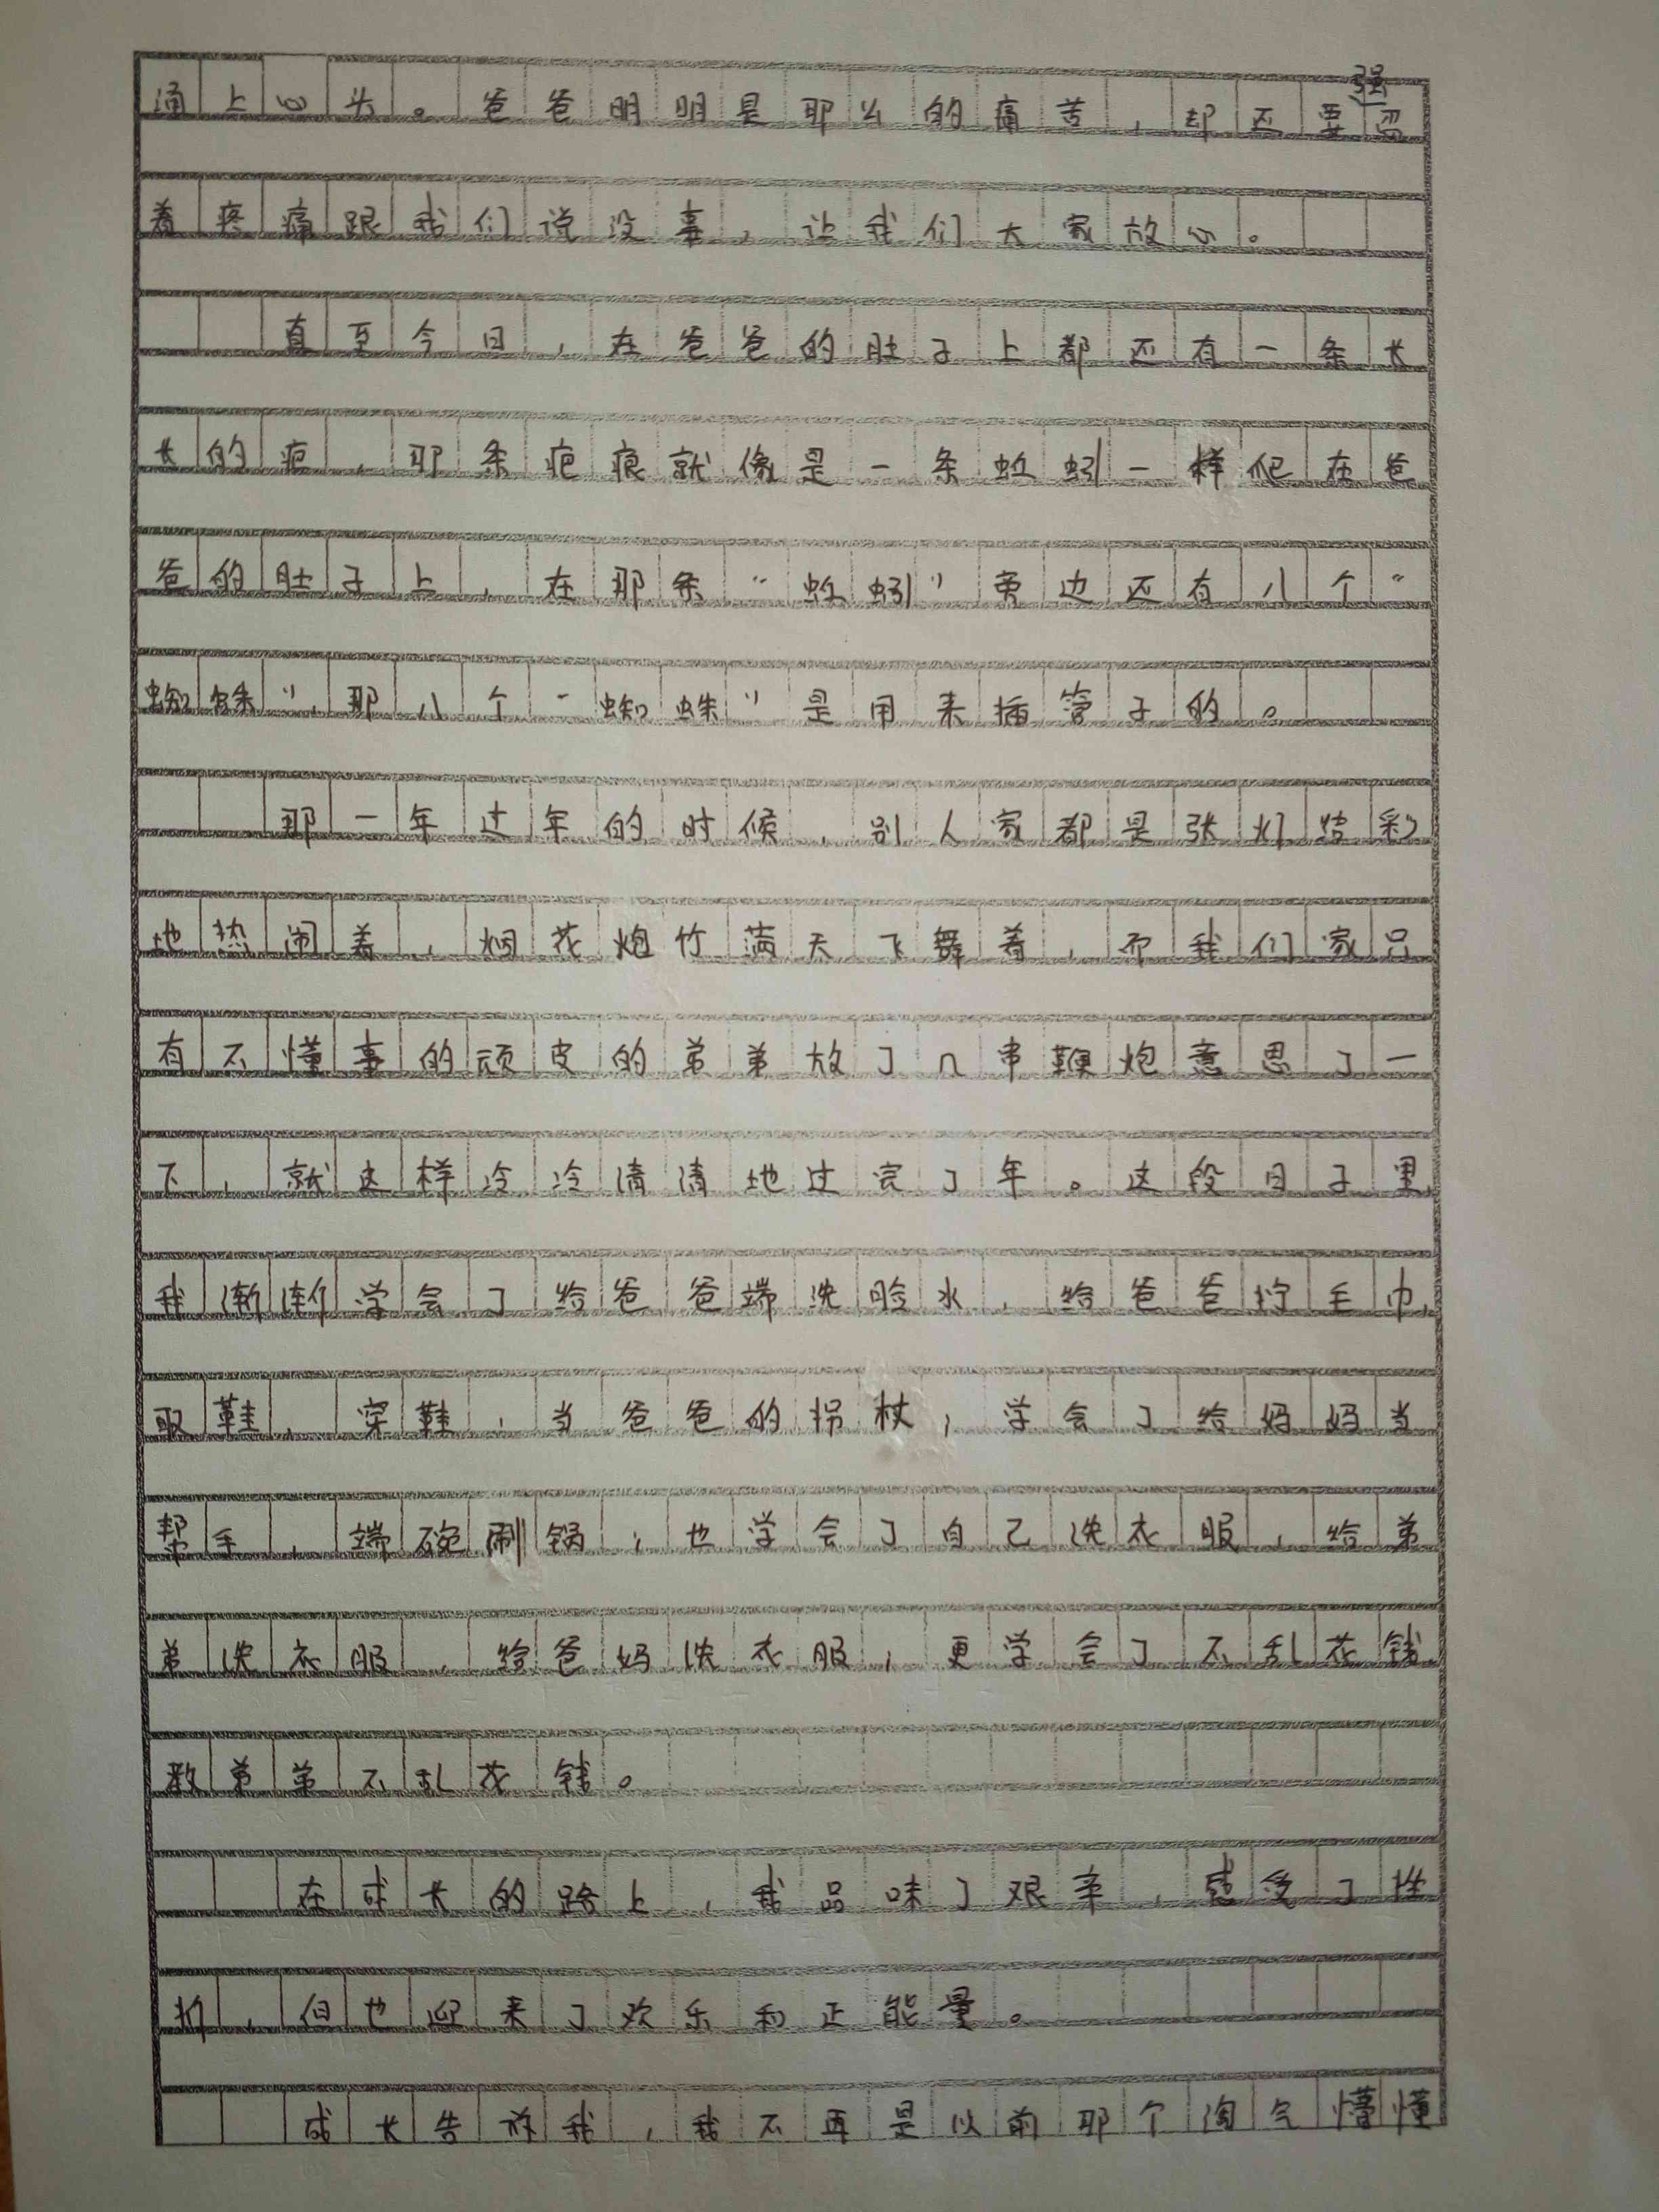 涌上心头。爸爸明明是那么的痛苦，却还要强忍
着疼痛跟我们说没事，让我们大家放心。
直至今日，在爸爸的肚子上都还有一条长
长的疤，那条疤痕就像是一条蚯蚓一样爬在爸
爸的肚子上，在那条“蚯蚓”旁边还有八个“
蜘蛛”，那八个“蜘蛛”是用来插管子的。
那一年过年的时候，别人家都是张灯结彩
地热闹着，烟花炮竹满天飞舞着，而我们家只
有不懂事的顽皮的弟弟放了几串鞭炮意思了一
下，就这样冷冷清清地过完了年。这段日子里，
我渐渐学会了给爸爸端洗脸水，给爸爸拧毛巾，
取鞋，穿鞋，当爸爸的拐杖；学会了给妈妈当
帮手，端碗刷锅；也学会了自己洗衣服，给弟
弟洗衣服，给爸妈洗衣服；更学会了不乱花钱，
教弟弟不乱花钱。
在成长的路上，我品味了艰辛，感受了挫
折，但也迎来了欢乐和正能量。
成长告诉我，我不再是以前那个淘气懵懂